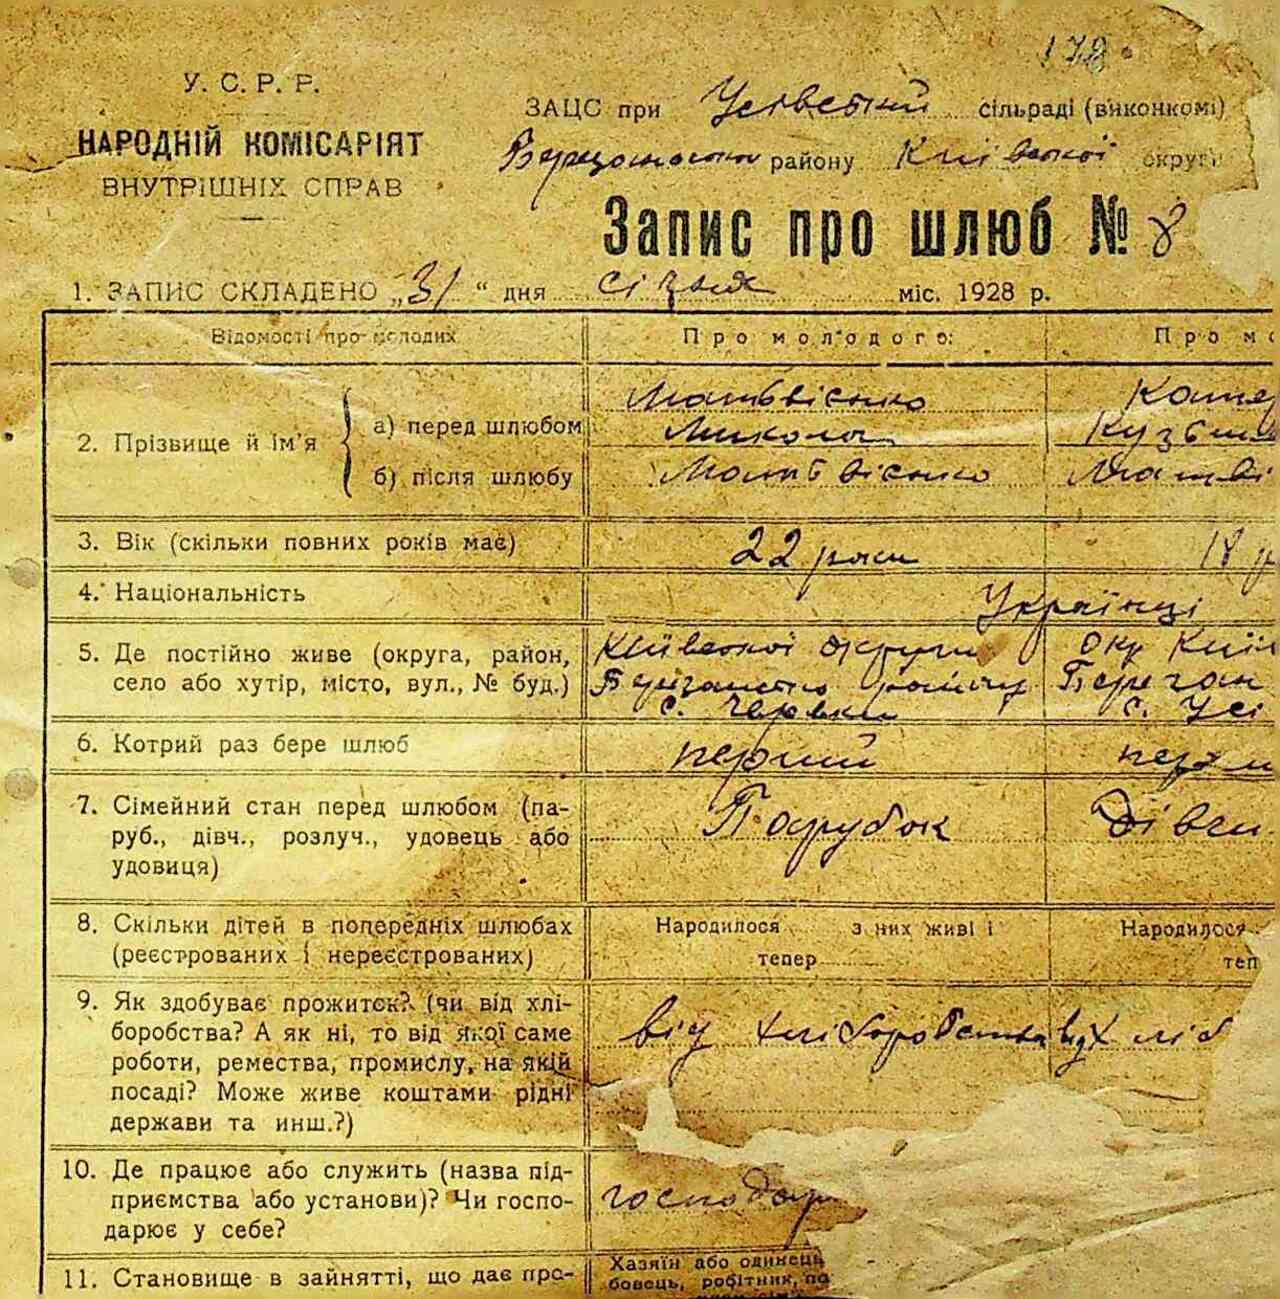 178
У. С. Р. Р.
НАРОДНІЙ КОМІСАРІЯТ
ВНУТРІШНІХ СПРАВ
ЗАЦС при сільраді (виконкомі)
району Київської округи
Запис про шлюб № 8
1. ЗАПИС СКЛАДЕНО „31" дня січня міс. 1928 р.
Відомості про молодих
Про молодого:
Про мо
2. Прізвище й ім'я
а) перед шлюбом
Матвієнко
Микола
Кузьм
б) після шлюбу
Матвієнко
Матві
3. Вік (скільки повних років має)
22 роки
18 р
4. Національність
Українці
5. Де постійно живе (округа, район,
село або хутір, місто, вул., № буд.)
Київської округи
району
с.
Окр Київ
с. Усі
6. Котрий раз бере шлюб
перший
перш
7. Сімейний стан перед шлюбом (па-
руб., дівч., розлуч., удовець або
удовиця)
Парубок
Дівчи
8. Скільки дітей в попередніх шлюбах
(реєстрованих і нереєстрованих)
Народилося з них живі і
тепер
Народилося
теп
9. Як здобуває прожиток? (чи від хлі-
боробства? А як ні, то від якої саме
роботи, ремества, промислу, на якій
посаді? Може живе коштами рідні
держави та инш.?)
від хліборобства
від хліб
10. Де працює або служить (назва під-
приємства або установи)? Чи госпо-
дарює у себе?
господар
11. Становище в зайнятті, що дає про-
Хазяїн або одинець
бовець, робітник, по